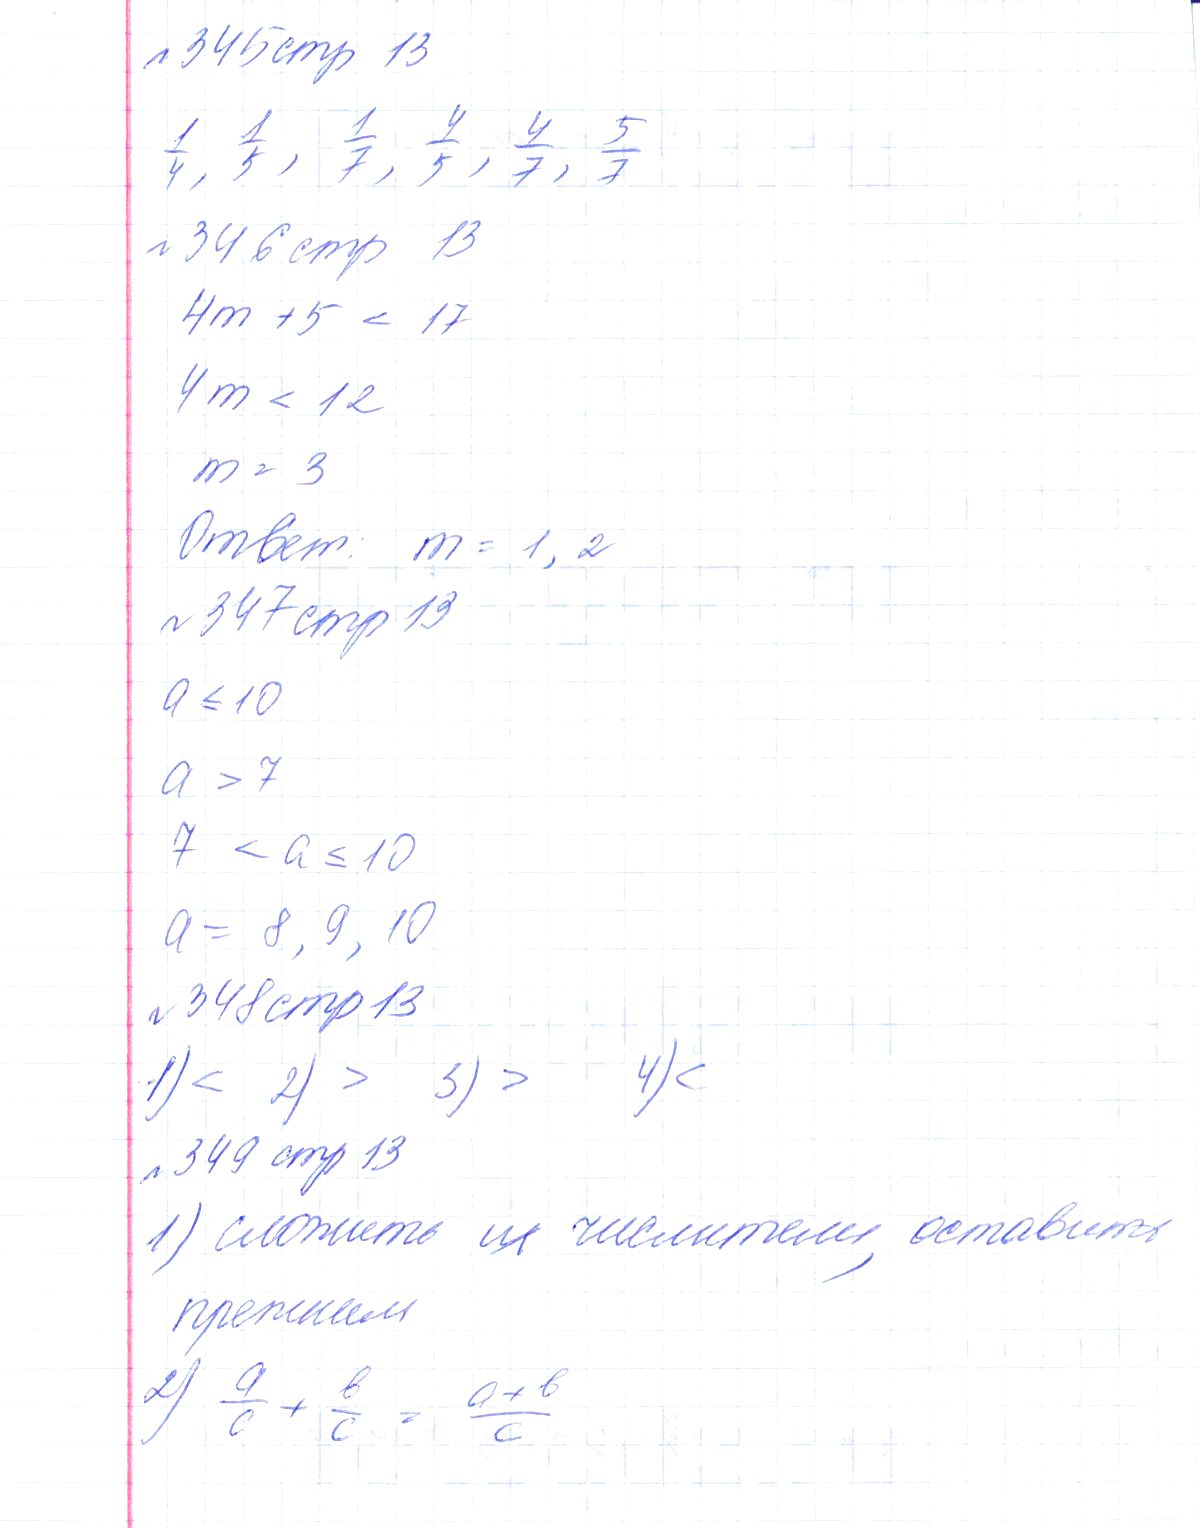 №345 стр 13
1/4, 1/5, 1/7, 4/5, 4/7, 5/7
№346 стр 13
4m + 5 < 17
4m < 12
m = 3
Ответ: m = 1, 2
№347 стр 13
a ≤ 10
a > 7
7 < a ≤ 10
a = 8, 9, 10
№348 стр 13
1) < 2) > 3) > 4) <
№349 стр 13
1) сложить их числители, оставить
прежним
2) a/c + b/c = a+b/c